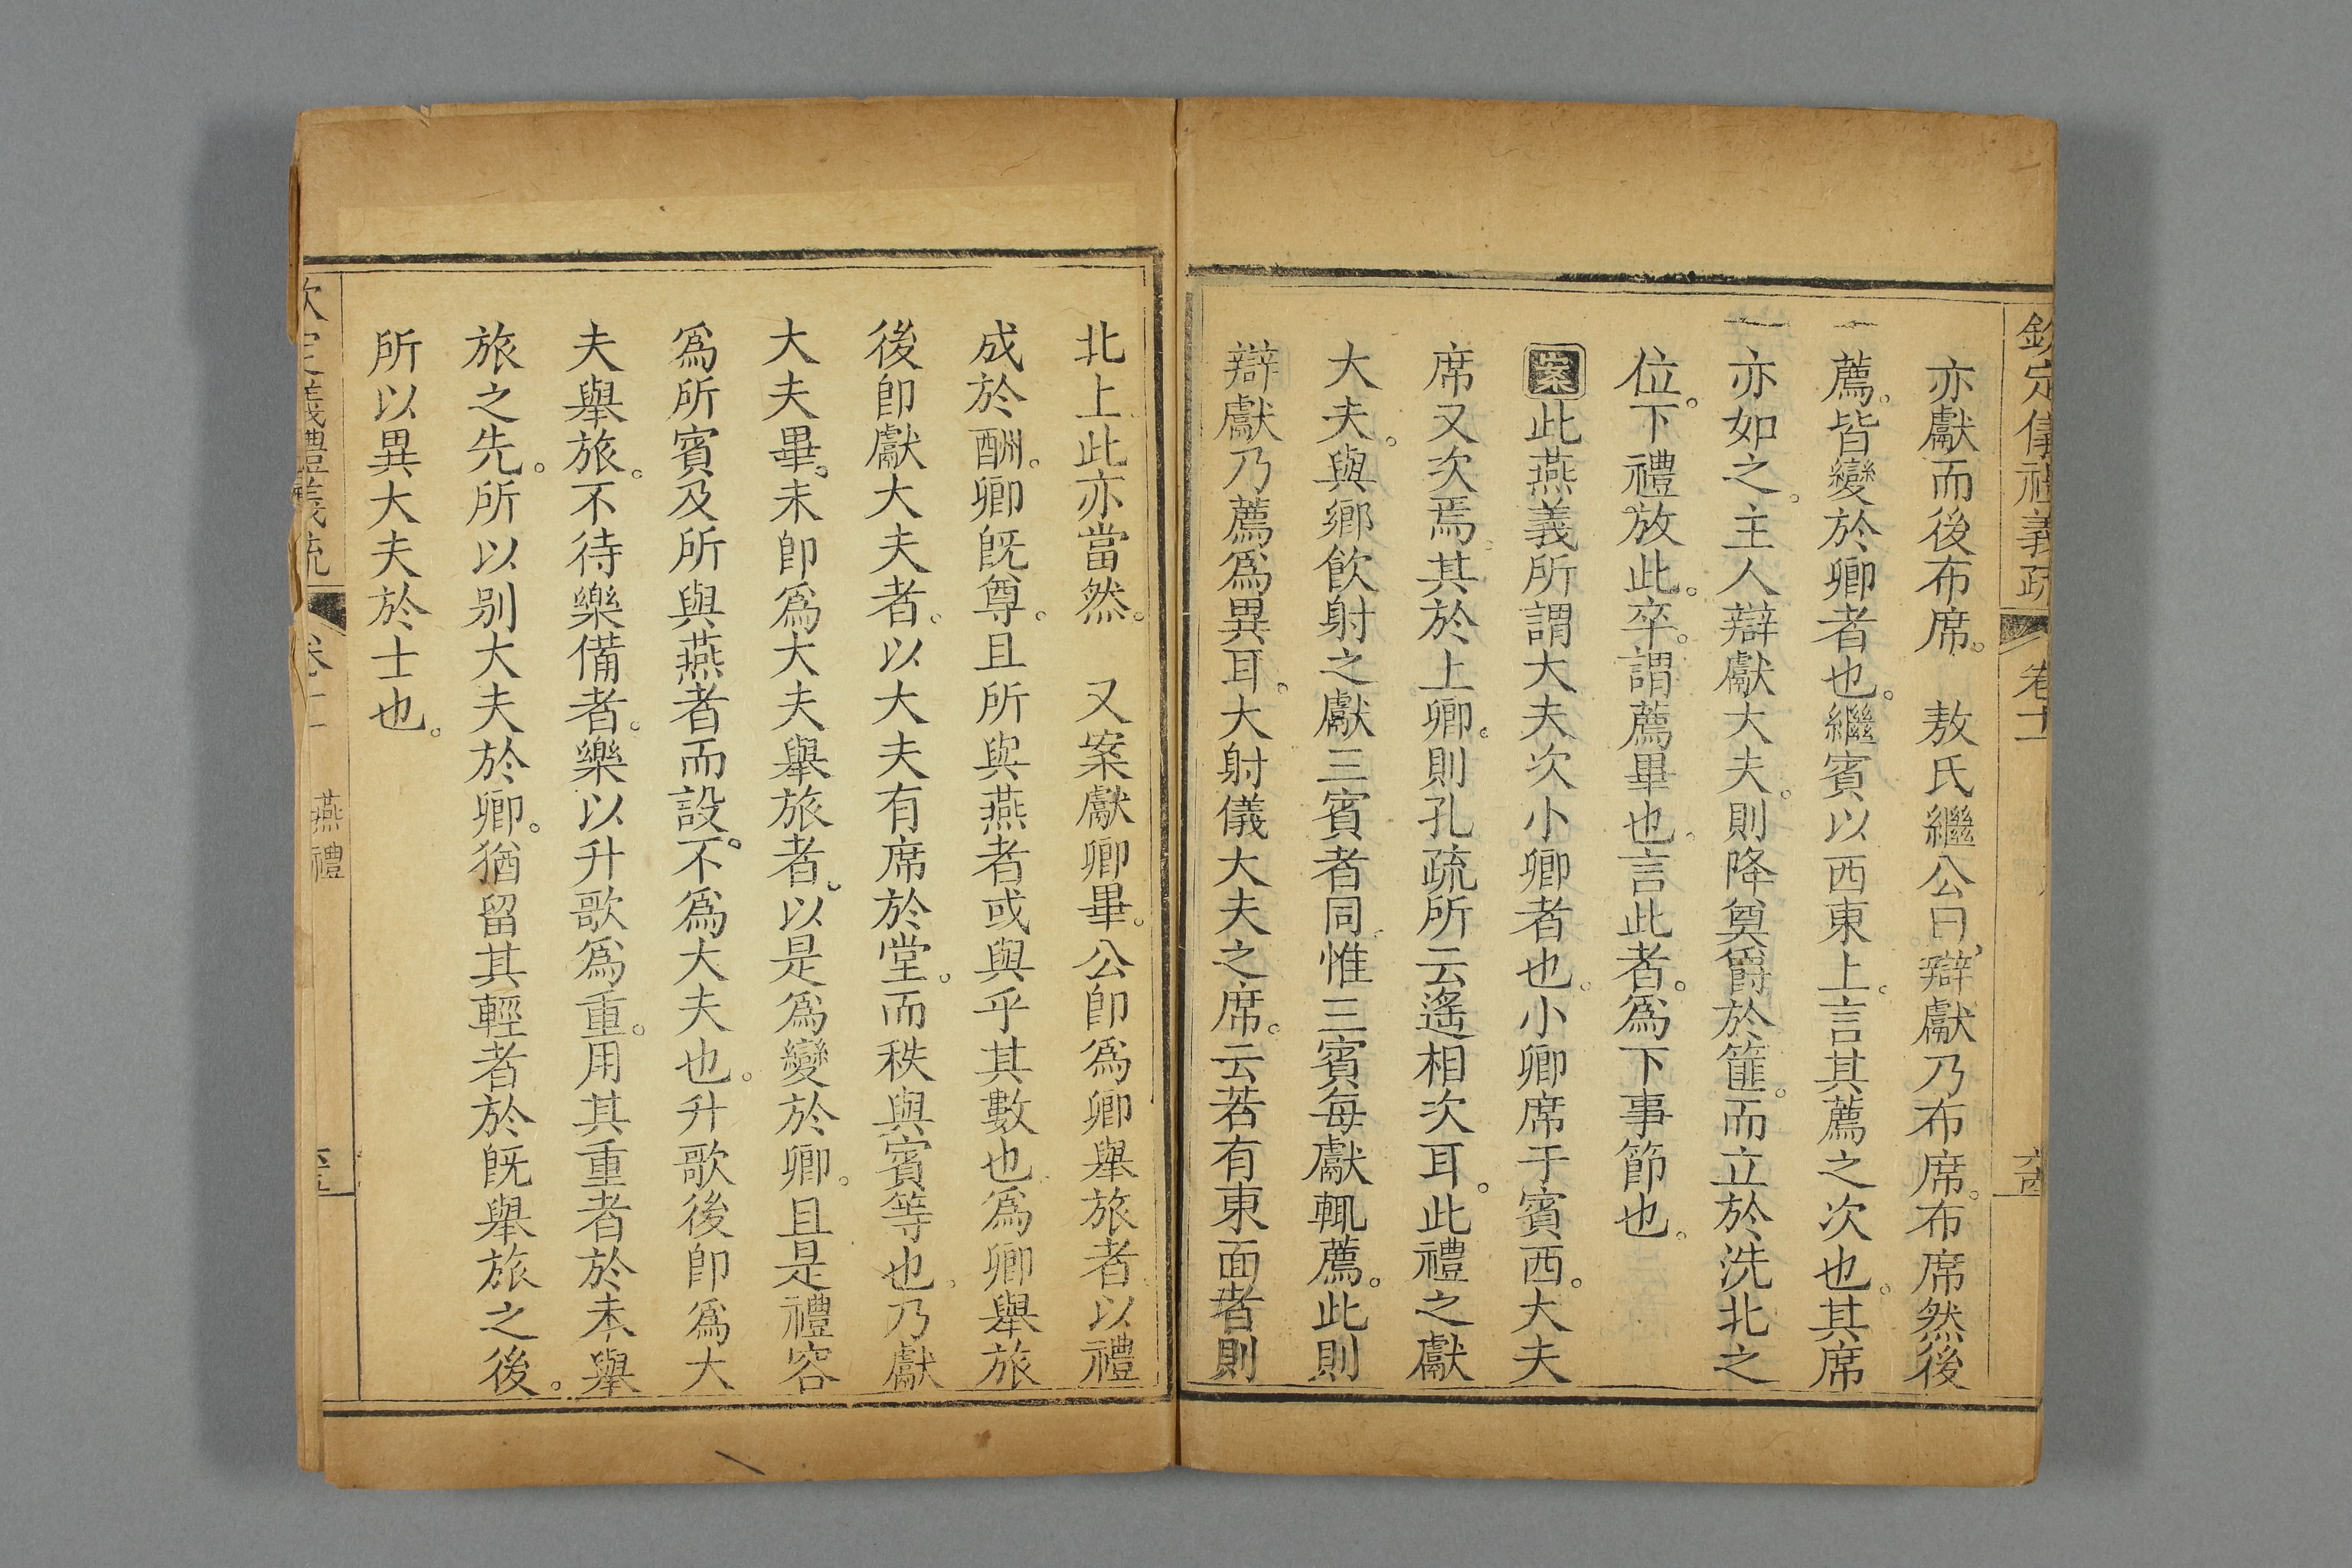 欽定儀禮義疏 卷十二 六十四
亦獻而後布席。　敖氏繼公曰、辯獻乃布席。布席然後
薦。皆變於卿者也。繼賓以西東上。言其薦之次也。其席
亦如之。主人辯獻大夫。則降奠爵於篚。而立於洗北之
位。下禮放此。卒。謂薦畢也。言此者。爲下事節也。
案此燕義所謂大夫次小卿者也。小卿席于賓西。大夫
席又次焉。其於上卿。則孔疏所云遙相次耳。此禮之獻
大夫。與鄉飲射之獻三賓者同。惟三賓每獻輒薦。此則
辯獻乃薦爲異耳。大射儀大夫之席。云若有東面者則
北上此亦當然。　又案獻卿畢。公卽爲卿舉旅者。以禮
成於酬。卿旣尊。且所與燕者或與乎其數也。爲卿舉旅
後卽獻大夫者。以大夫有席於堂。而秩與賓等也。乃獻
大夫畢。未卽爲大夫舉旅者。以是爲變於卿。且是禮容
爲所賓及所與燕者而設。不爲大夫也。升歌後卽爲大
夫舉旅。不待樂備者。樂以升歌爲重。用其重者於未舉
旅之先。所以别大夫於卿。猶留其輕者於旣舉旅之後。
所以異大夫於士也。
欽定義禮義疏 卷十二 燕禮